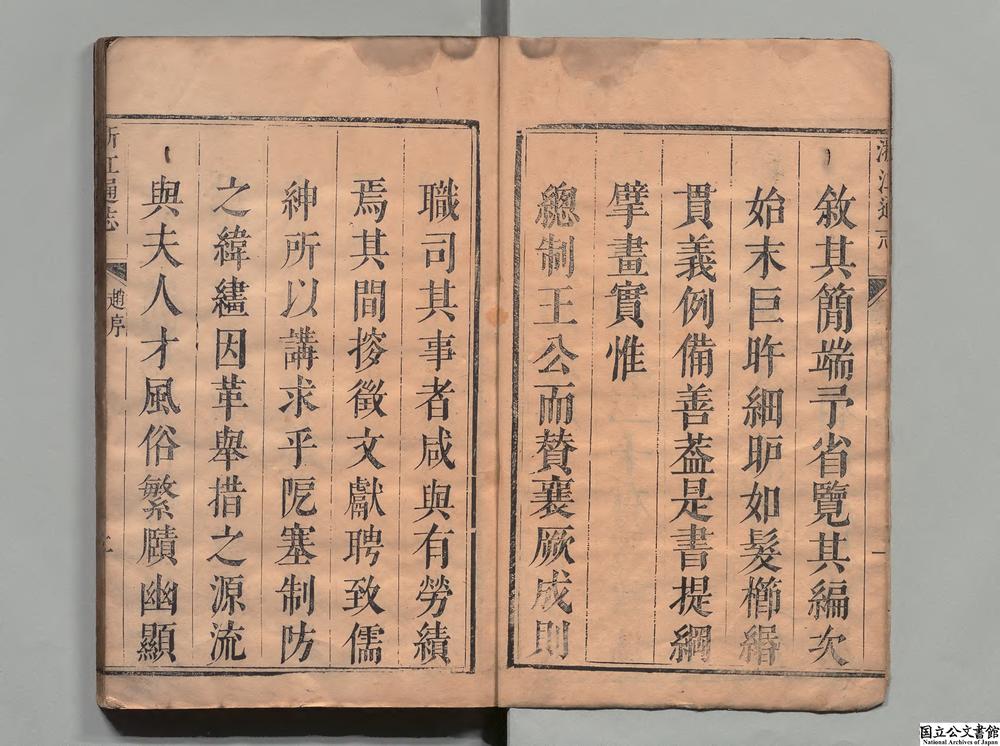 敘其簡端予省覽其編次
始末巨細如髮櫛緡
貫義例備善葢是書提綱
擘畫實惟
總制王公而贊襄厥成則
職司其事者咸與有勞績
焉其間徵文獻聘致儒
紳所以講求乎阨塞制防
之緯繣因革舉措之源流
與夫人才風俗繁賾幽顯
浙江通志 趙序
国立公文書館
National Archives of Japan